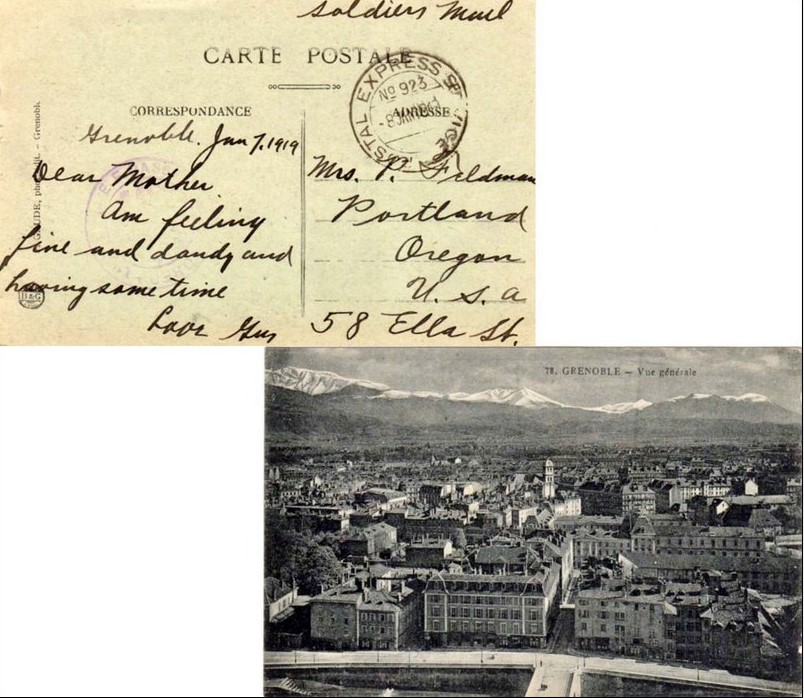 Soldiers Mail
CARTE POSTALE
POSTAL EXPRESS SERVICE
No 923
CORRESPONDANCE
ADRESSE
Grenoble. Jan 7. 1919
Dear Mother
Am feeling
fine and dandy and
having some time
Love Gus
Mrs. P. Feldman
Portland
Oregon
U. S. A
58 Ella St.
Grenoble.
D&G
78. GRENOBLE – Vue générale